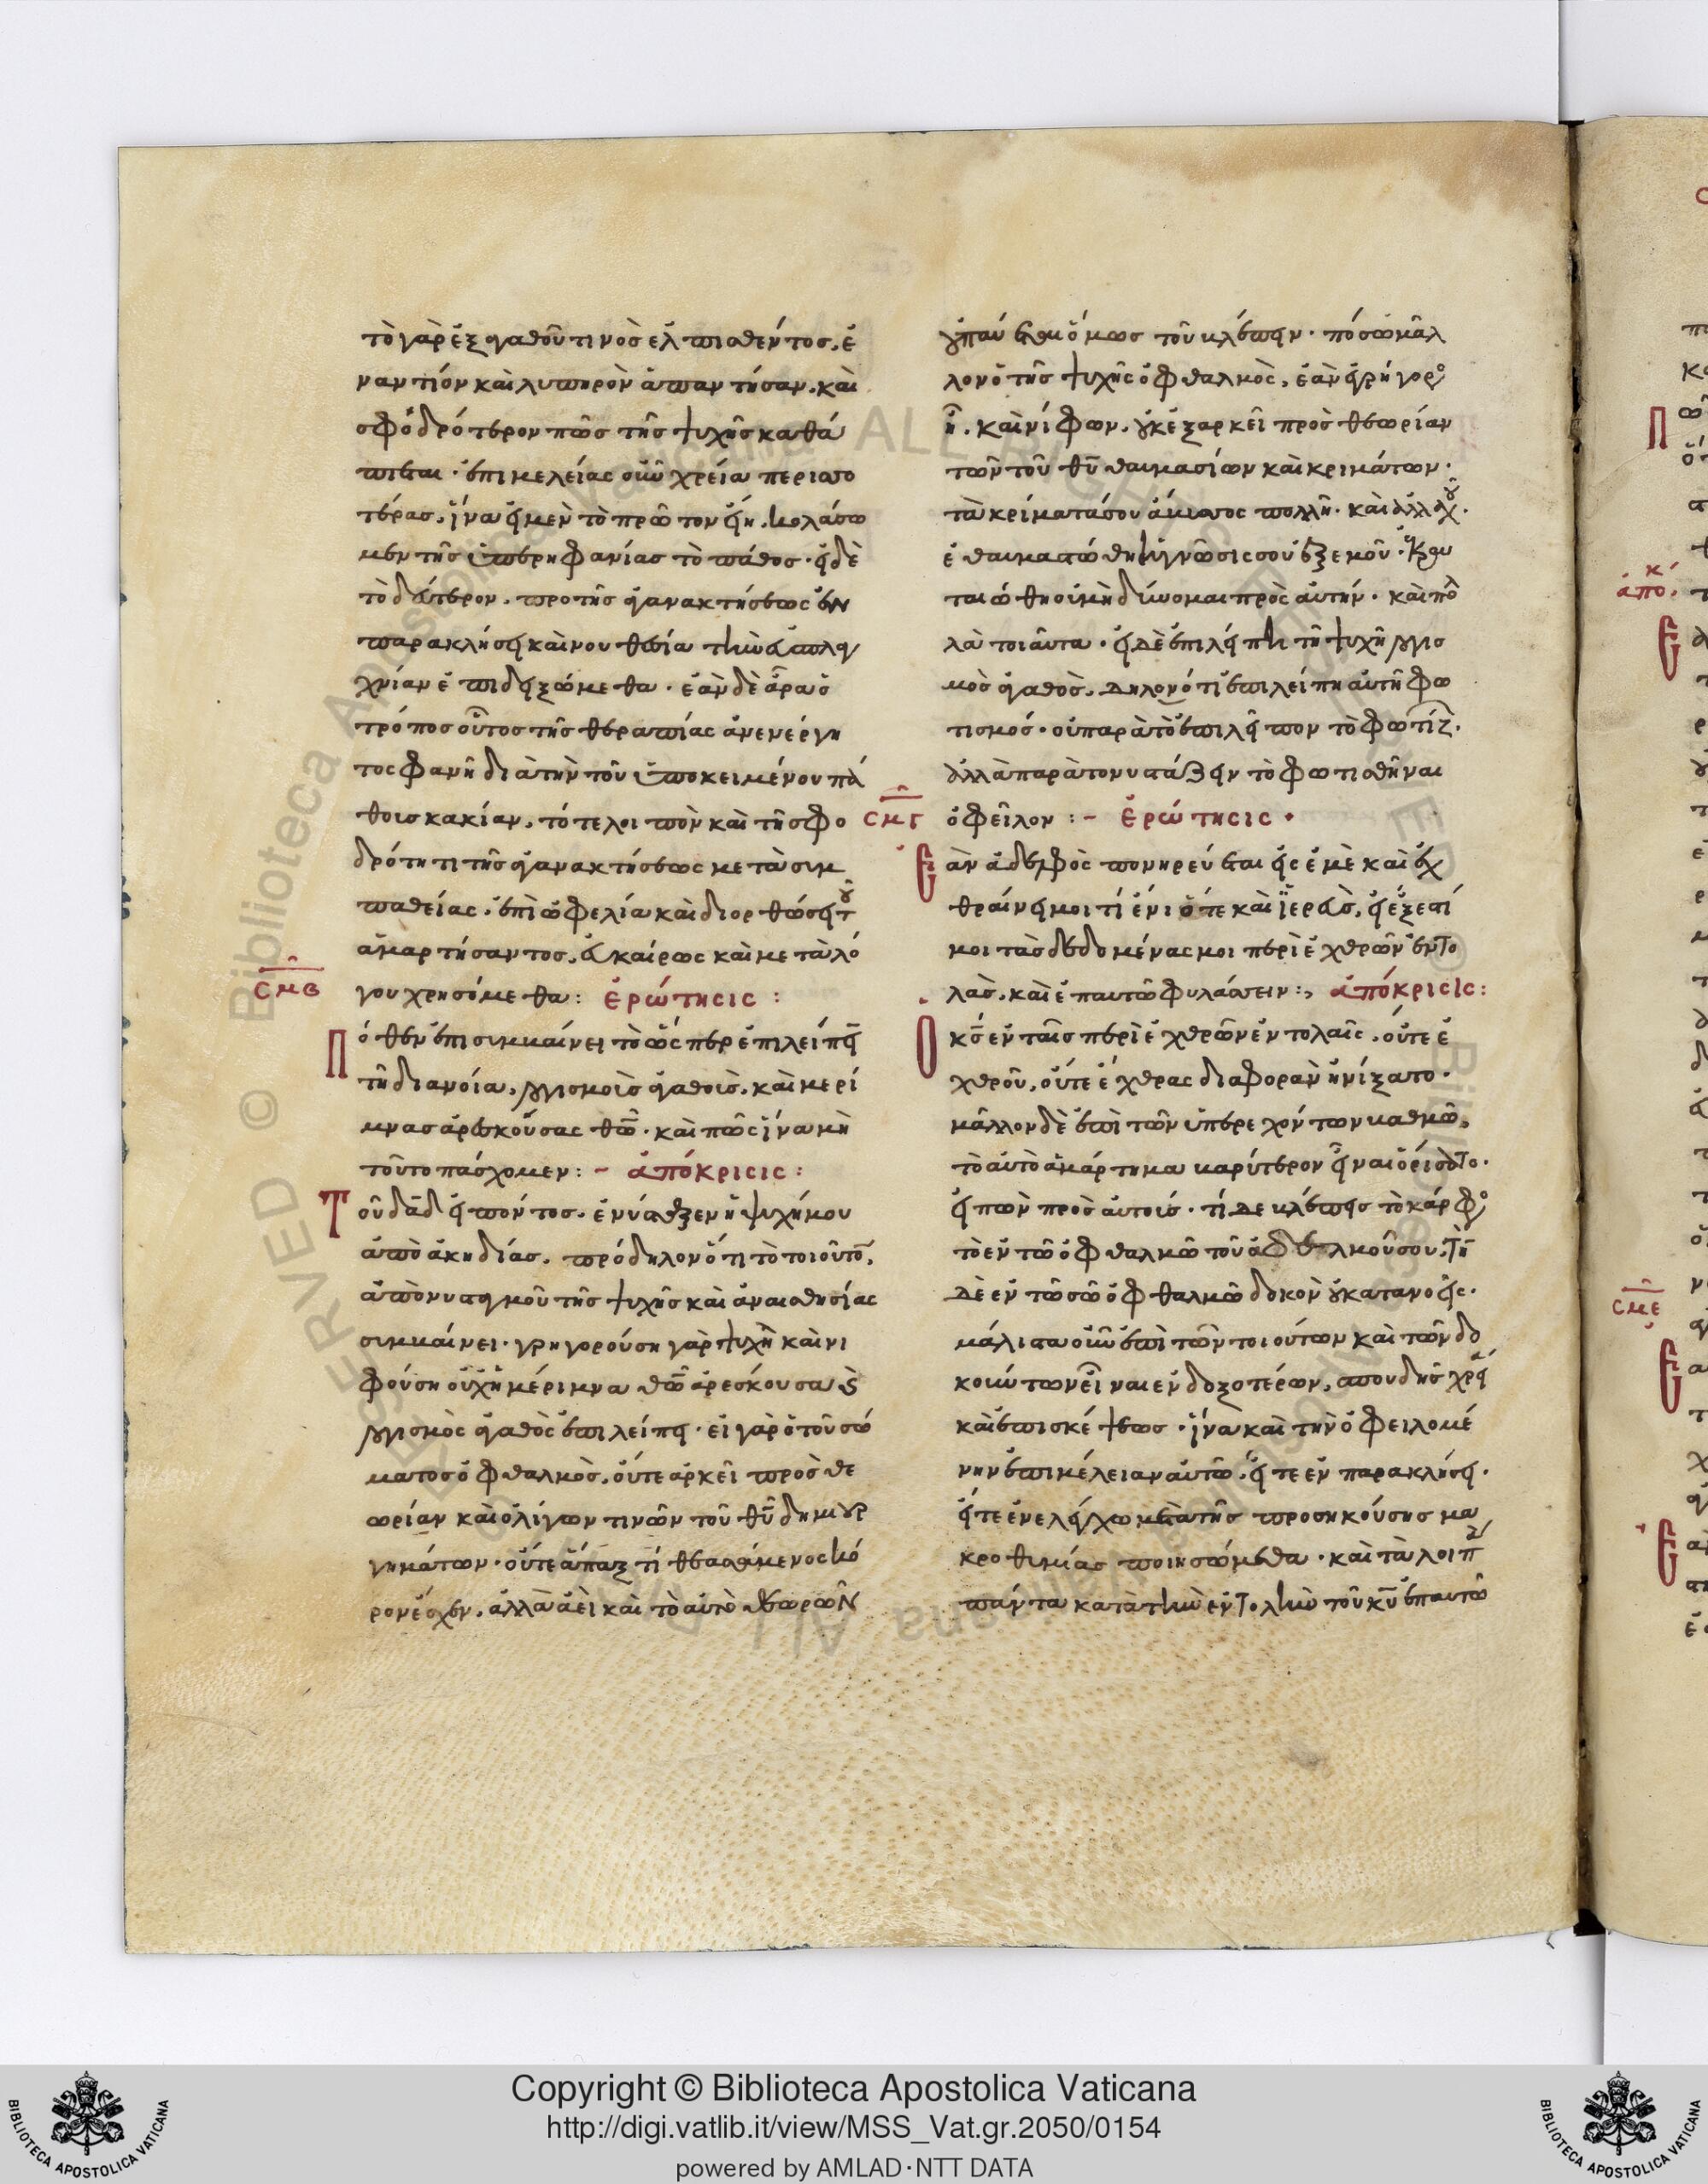 τὸ γὰρ ἐξ ἀγαθοῦ τινὸς ἐλπισθέντος, ἐ
ναντίον καὶ λυπηρὸν ἀπαντῆσαν, καὶ
σφοδρότερον πῶς τῆς ψυχῆς καθά
πτεται· ἐπιμελείας οὖν χρεία περισσο
τέρας, ἵνα εἰ μὲν τὸ πρῶτον εἴη, κολάσω
μεν τῆς ὑπερηφανίας τὸ πάθος· εἰ δὲ
τὸ δεύτερον, πρὸ τῆς ἀγανακτήσεως ἐν
παρακλήσει καὶ νουθεσία τὴν εὐσπλα
χνίαν ἐπιδειξώμεθα· ἐὰν δὲ ἄρα ὁ
τρόπος οὗτος τῆς θεραπείας ἀνενέργη
τος φανῆ διὰ τὴν τοῦ ὑποκειμένου πά
θοις κακίαν, τὸ τελοιπὸν καὶ τῆ σφο
δρότητι τῆς ἀγανακτήσεως μετὰ συμ
παθείας, ἐπὶ ὠφελία καὶ διορθώσει τοῦ
ἁμαρτήσαντος, εὐκαίρως καὶ μετὰ λό
σμβ
γου χρησόμεθα: ἐρώτησις:
Πόθεν ἐπισυμβαίνει τὸ ὥσπερ ἐπιλείπειν
τῆ διανοία, λογισμοῖς ἀγαθοῖς, καὶ μερί
μνας ἀρεσκούσας θῶ· καὶ πῶς ἵνα μὴ
τοῦτο πάσχομεν:– ἀπόκρισις:
Τοῦ δᾱδ εἰπόντος· ἐνύσταξεν ἡ ψυχή μου
ἀπὸ ἀκηδίας, πρόδηλον ὅτι τὸ τοιοῦτο,
ἀπὸ νυσταγμοῦ τῆς ψυχῆς καὶ ἀναισθησίας
συμβαίνει· γρηγορούση γὰρ ψυχῆ καὶ νι
φούση οὐχὶ μέριμνα θῶ ἀρέσκουσα καὶ
λογισμὸς ἀγαθὸς ἐπιλείπει· εἰ γὰρ ὁ τοῦ σώ
ματος ὀφθαλμὸς, οὔτε ἀρκεῖ πρὸς θε
ωρίαν καὶ ὀλίγων τινῶν τοῦ θῡ δημιουρ
γημάτων· οὔτε ἅπαξ τί θεασάμενος κό
ρον ἔσχεν, ἀλλὰ ἀεὶ καὶ τὸ αὐτὸ θεωρῶν
οὐ παύεται ὅμως τοῦ βλέπειν· πόσω μᾶλ
λον ὁ τῆς ψυχῆς ὀφθαλμὸς, ἐὰν ἐγρήγορος
ῆ, καὶ νίφων, οὐκ ἐξαρκεῖ πρὸς θεωρίαν
τῶν τοῦ θῡ θαυμασίων καὶ κριμάτων·
τὰ κρίματά σου ἄβυσσος πολλὴ· καὶ ἀλλαχοῦ·
ἐθαυμαστώθη ἡ γνῶσίς σου ἐξ ἐμοῦ· ἐκρα
ταιώθη οὐ μὴ δύνωμαι πρὸς αὐτήν· καὶ πολ
λὰ τοιαῦτα· εἰ δὲ ἐπιλείπει τῆ ψυχῆ λογισ
μὸς ἀγαθὸς, δηλονότι ἐπιλείπη αὐτῆ φω
τισμός· οὐ παρὰ τὸ ἐπιλεῖπον τὸ φωτίζον·
ἀλλὰ παρὰ τὸ νυστάζειν τὸ φωτισθῆναι
σμγ
ὀφεῖλον:– ἐρώτησις·
Ἐὰν ἀδελφὸς πονηρεύεται εἰς ἐμὲ καὶ ἐχ
θραίνει μοι τί ἐνιότε καὶ ἱερεὺς, εἰ ἔξεστί
μοι τὰς δεδομένας μοι περὶ ἐχθρῶν ἐντο
λὰς, καὶ ἐπ αὐτῶ φυλάσσειν:, ἀπόκρισις:
Ὁ κς ἐν ταῖς περὶ ἐχθρῶν ἐντολαῖς, οὔτε ἐ
χθροῦ, οὔτε ἔχθρας διαφορὰν ἠνίξατο·
μᾶλλον δὲ ἐπὶ τῶν ὑπερεχόντων βαθμῶ,
τὸ αὐτὸ ἁμάρτημα βαρύτερον εἶναι ὁρίσατο·
εἰπὼν πρὸς αὐτούς· τί δε βλέπεις τὸ κάρφος
τὸ ἐν τῶ ὀφθαλμῶ τοῦ ἀδελφοῦ σου, τὴν
δὲ ἐν τῶ σῶ ὀφθαλμῶ δοκὸν οὐ κατανοεῖς·
μάλιστα οὖν ἐπὶ τῶν τοιούτων καὶ τῶν δο
κούντων εἶναι ἐνδοξοτέρων, σπουδῆς χρεία
καὶ ἐπισκέψεως· ἵνα καὶ τὴν ὀφειλομέ
νην ἐπιμέλειαν αὐτῶ, εἴτε ἐν παρακλήσει·
εἴτε ἐν ἐλέγχω μετὰ τῆς προσηκούσης μα
κροθυμίας ποιησώμεθα· καὶ τὰ λοιπὰ
πάντα κατὰ τὴν ἐντολὴν τοῦ κῡ ἐπ αὐτῶ
κ
ἀπο.
σμε
Copyright © Biblioteca Apostolica Vaticana
http://digi.vatlib.it/view/MSS_Vat.gr.2050/0154
powered by AMLAD·NTT DATA
BIBLIOTECA APOSTOLICA VATICANA
BIBLIOTECA APOSTOLICA VATICANA